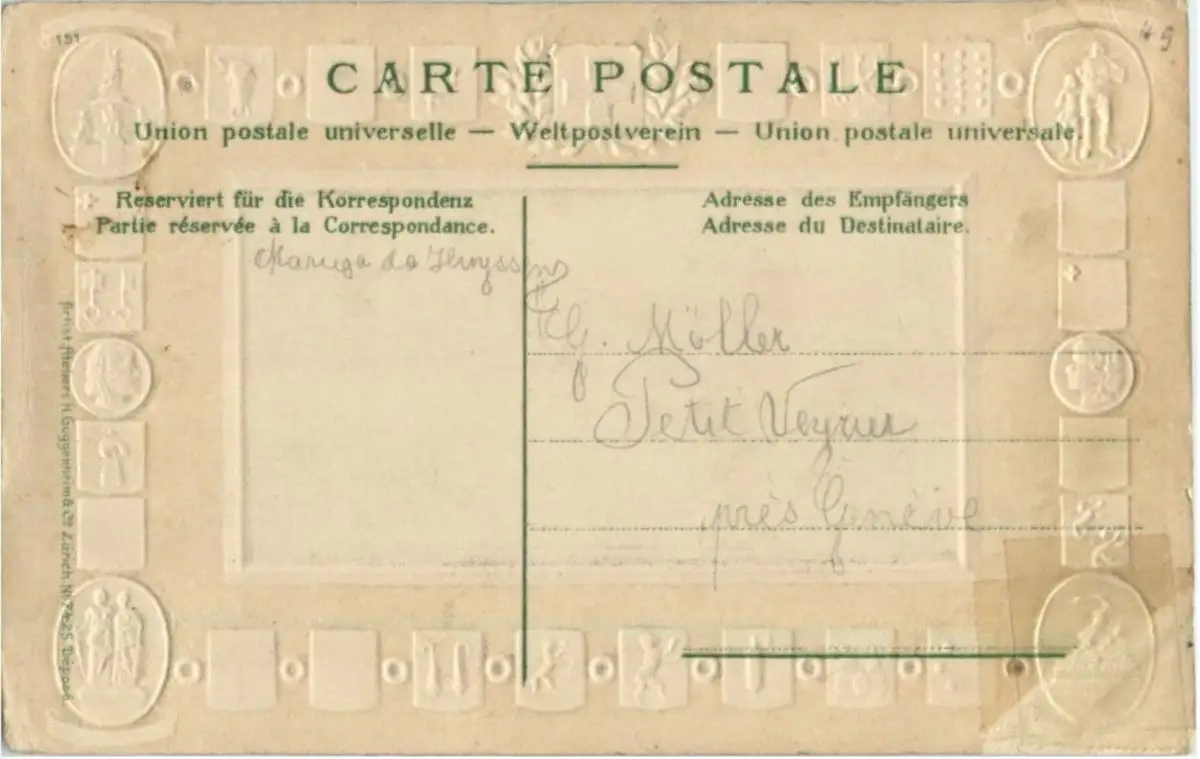 151
49
CARTE POSTALE
Union postale universelle — Weltpostverein — Union postale universale.
Reserviert für die Korrespondenz
Partie réservée à la Correspondance.
Adresse des Empfängers
Adresse du Destinataire.
Möller
Petit Veyrier
près Genève
Artist. Ateliers H. Guggenheim & Co. Zürich No 7425 Déposé